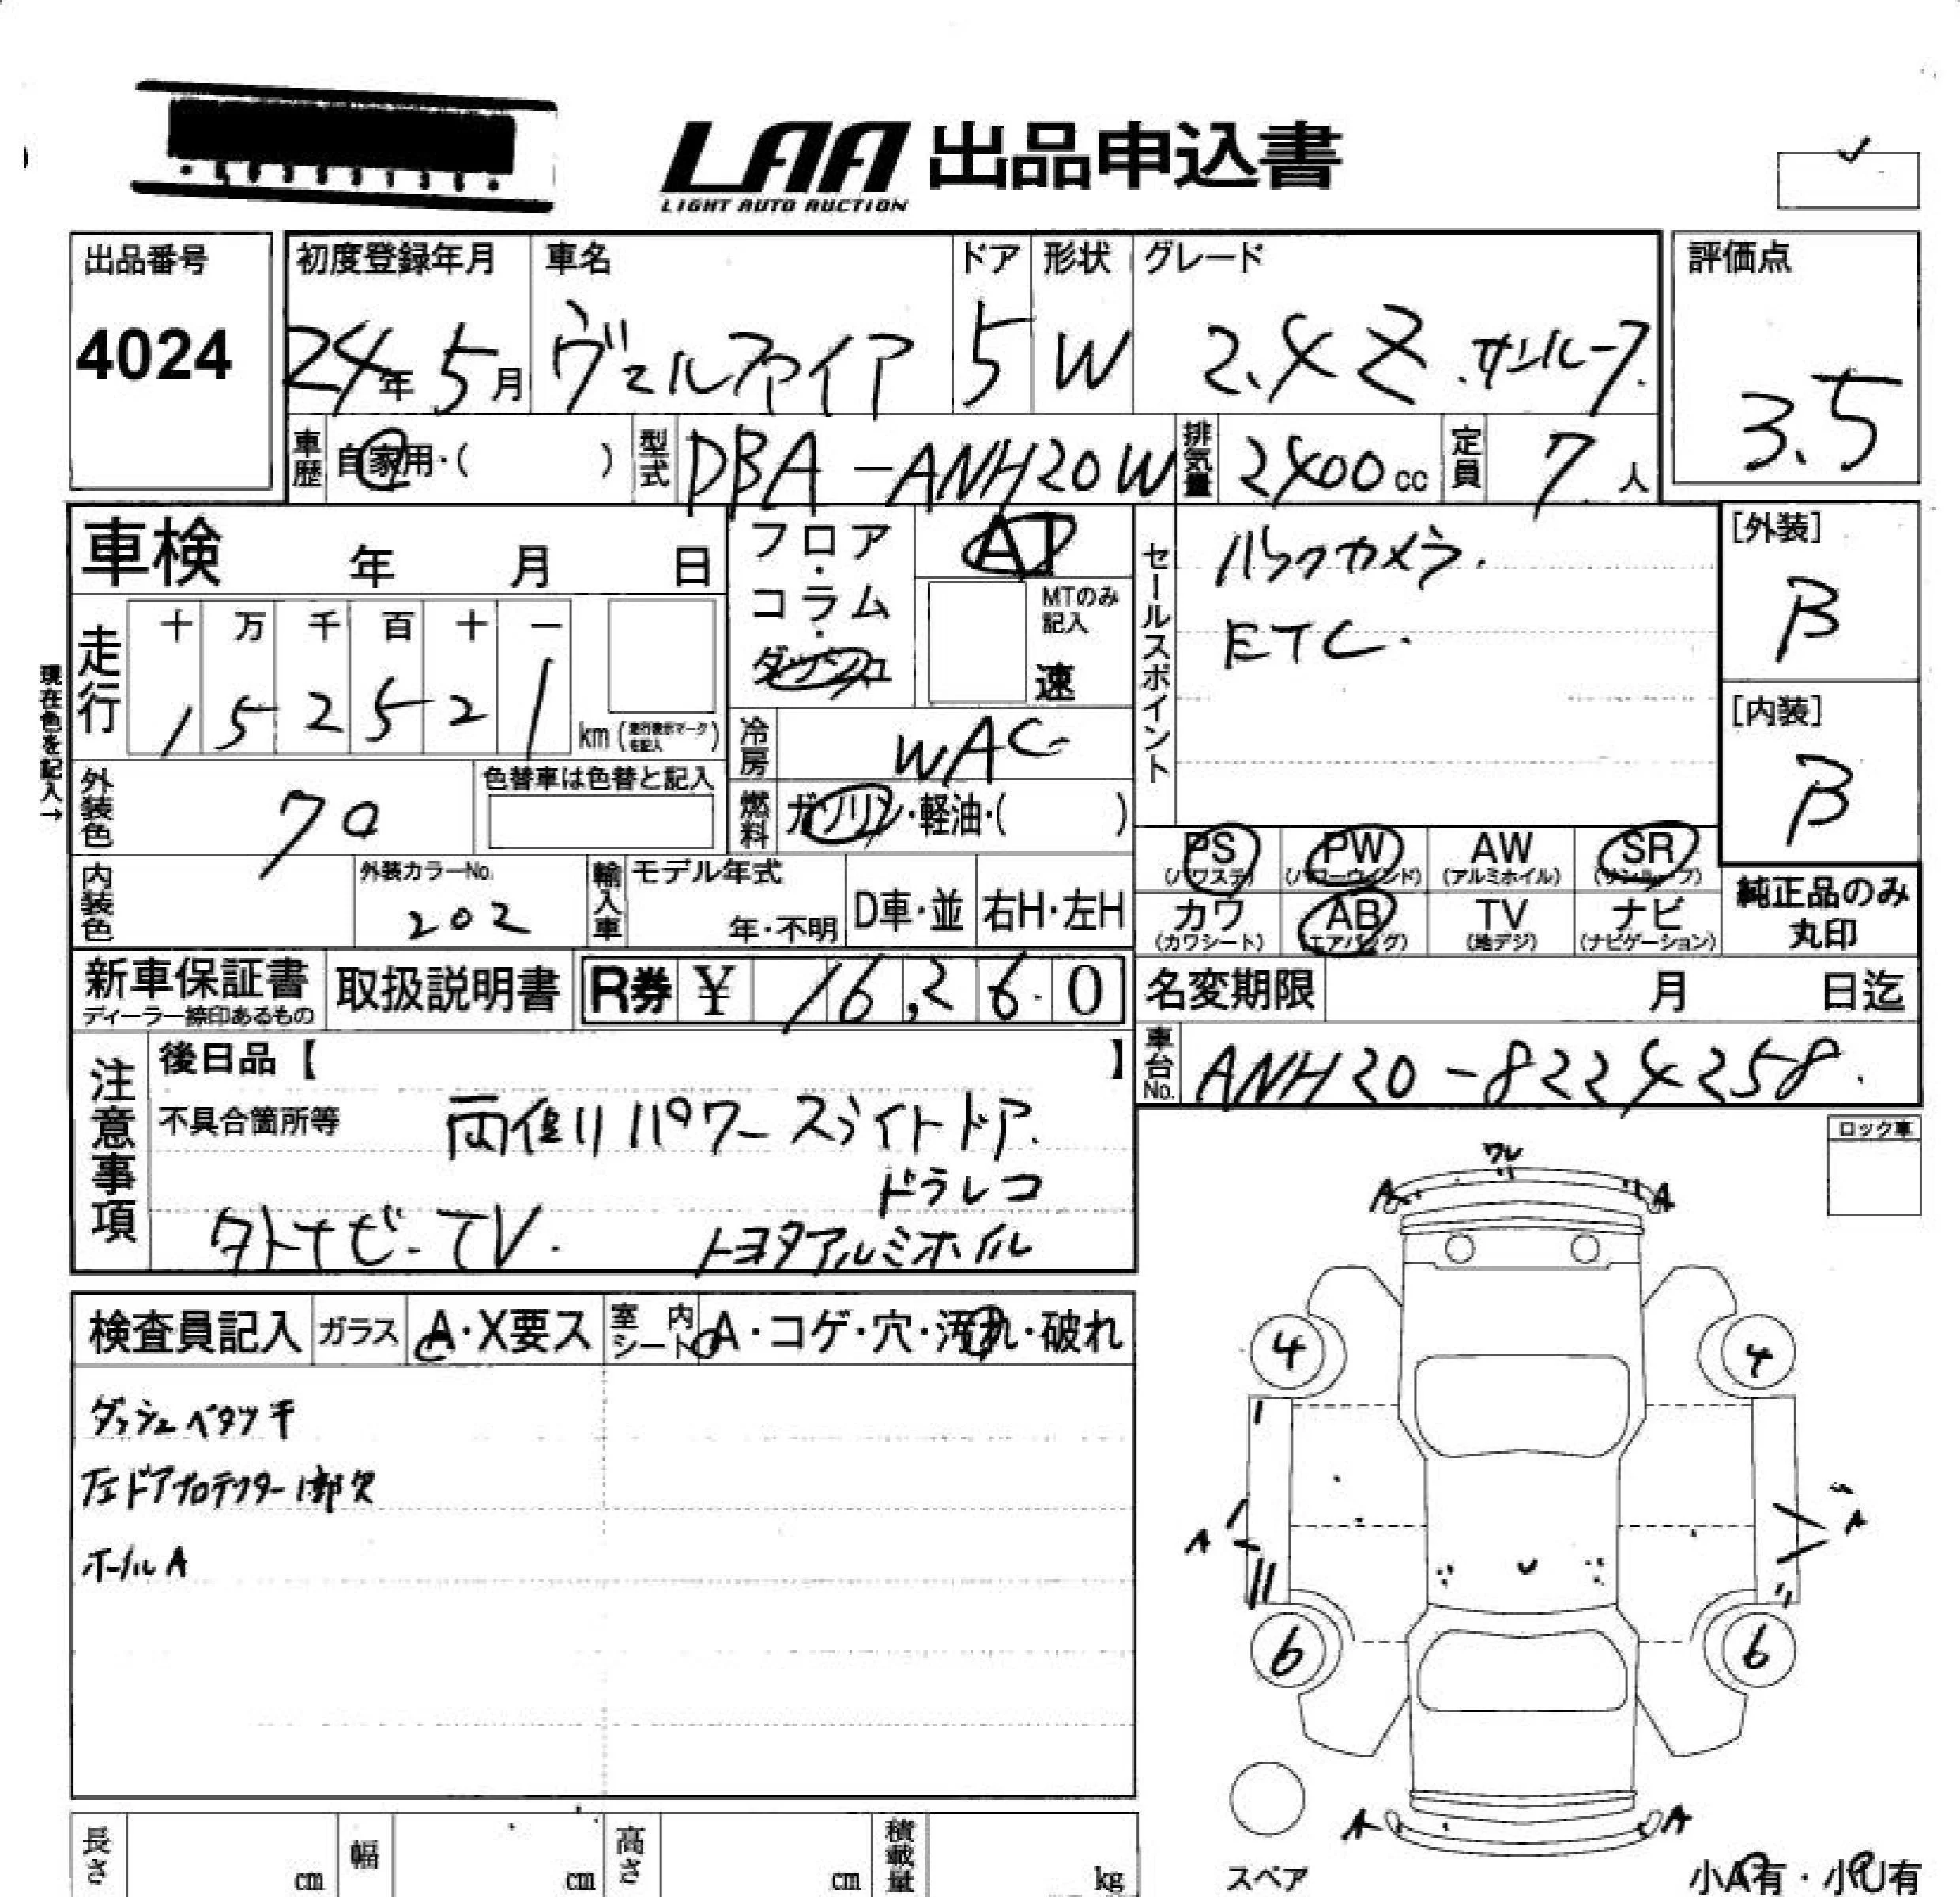 LAA 出品申込書
LIGHT AUTO AUCTION
出品番号
4024
初度登録年月
24年 5月
車名
ヴェルファイア
ドア
5
形状
W
グレード
2.4Z.サンルーフ.
評価点
3.5
車歴
自家用・( )
型式
DBA-ANH20W
排気量
2400cc
定員
7人
車検 年 月 日
フロア・コラム・ダッシュ
AT
MTのみ記入
速
セールスポイント
バックカメラ.
ETC.
[外装]
B
[内装]
B
現在色を記入→
走行
十 万 千 百 十 一
1 5 2 5 2 1
km (走行表示マークを記入)
冷房
WAC
燃料
ガソリン・軽油・( )
外装色
70
色替車は色替と記入
内装色
外装カラーNo.
202
輸入車
モデル年式
年・不明
D車・並
右H・左H
PS
(パワステ)
PW
(パワーウインド)
AW
(アルミホイル)
SR
(サンルーフ)
カワ
(カワシート)
AB
(エアバッグ)
TV
(地デジ)
ナビ
(ナビゲーション)
純正品のみ
丸印
新車保証書
ディーラー捺印あるもの
取扱説明書
R券 ¥ 16,260
名変期限 月 日迄
車台No.
ANH20-8224258.
注意事項
後日品【 】
不具合箇所等
両側パワースライドドア.
ドラレコ
外ナビ.TV.
トヨタアルミホイル
ロック車
検査員記入
ガラス
A・X要ス
室内シート
A・コゲ・穴・汚れ・破れ
ダッシュベタツキ
左ドアプロテクター1部欠
ホイルA
ワレ
A A
4 4
A A
6 6
A A
スペア
小A有・小U有
長さ cm
幅 cm
高さ cm
積載量 kg